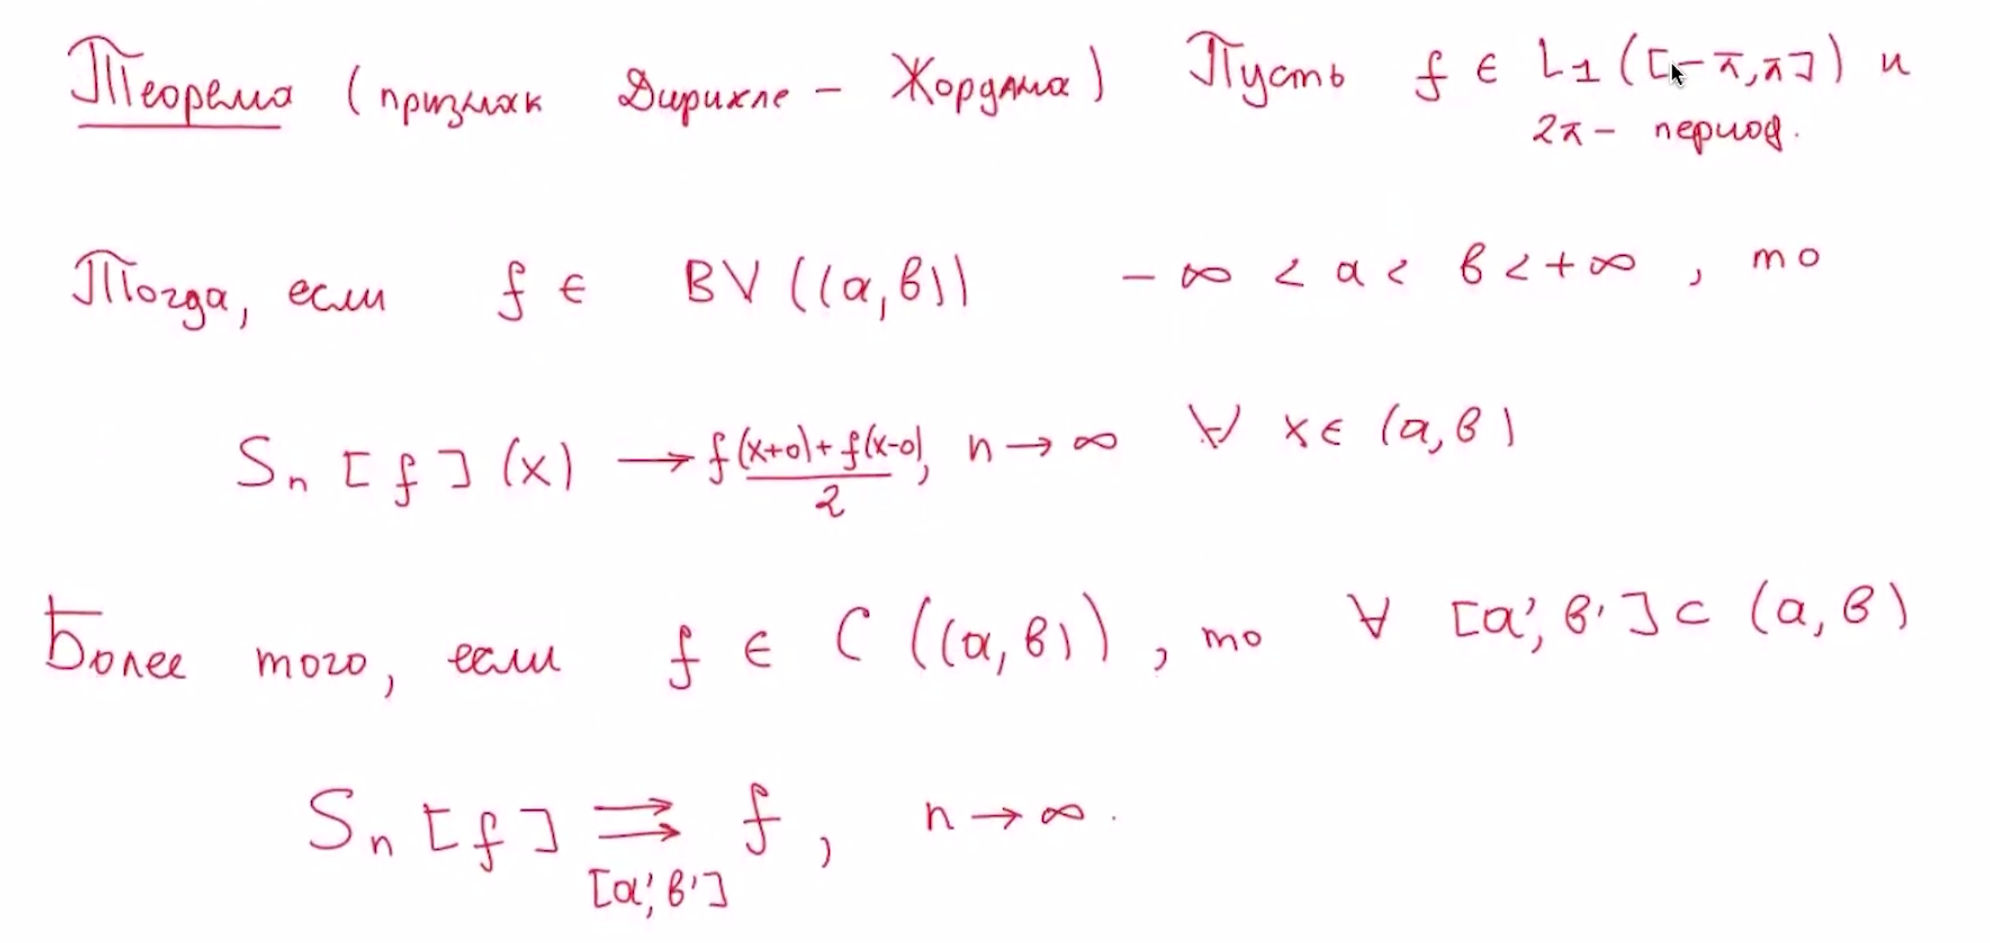 Теорема (признак Дирихле – Жордана) Пусть f ∈ L₁([-π,π]) и
2π – период.
Тогда, если f ∈ BV((a,b)) -∞ < a < b < +∞, то
Sₙ[f](x) → (f(x+0)+f(x-0))/2, n → ∞ ∀ x ∈ (a,b)
Более того, если f ∈ C((a,b)), то ∀ [a',b'] ⊂ (a,b)
Sₙ[f] ⇉ f, n → ∞.
[a',b']